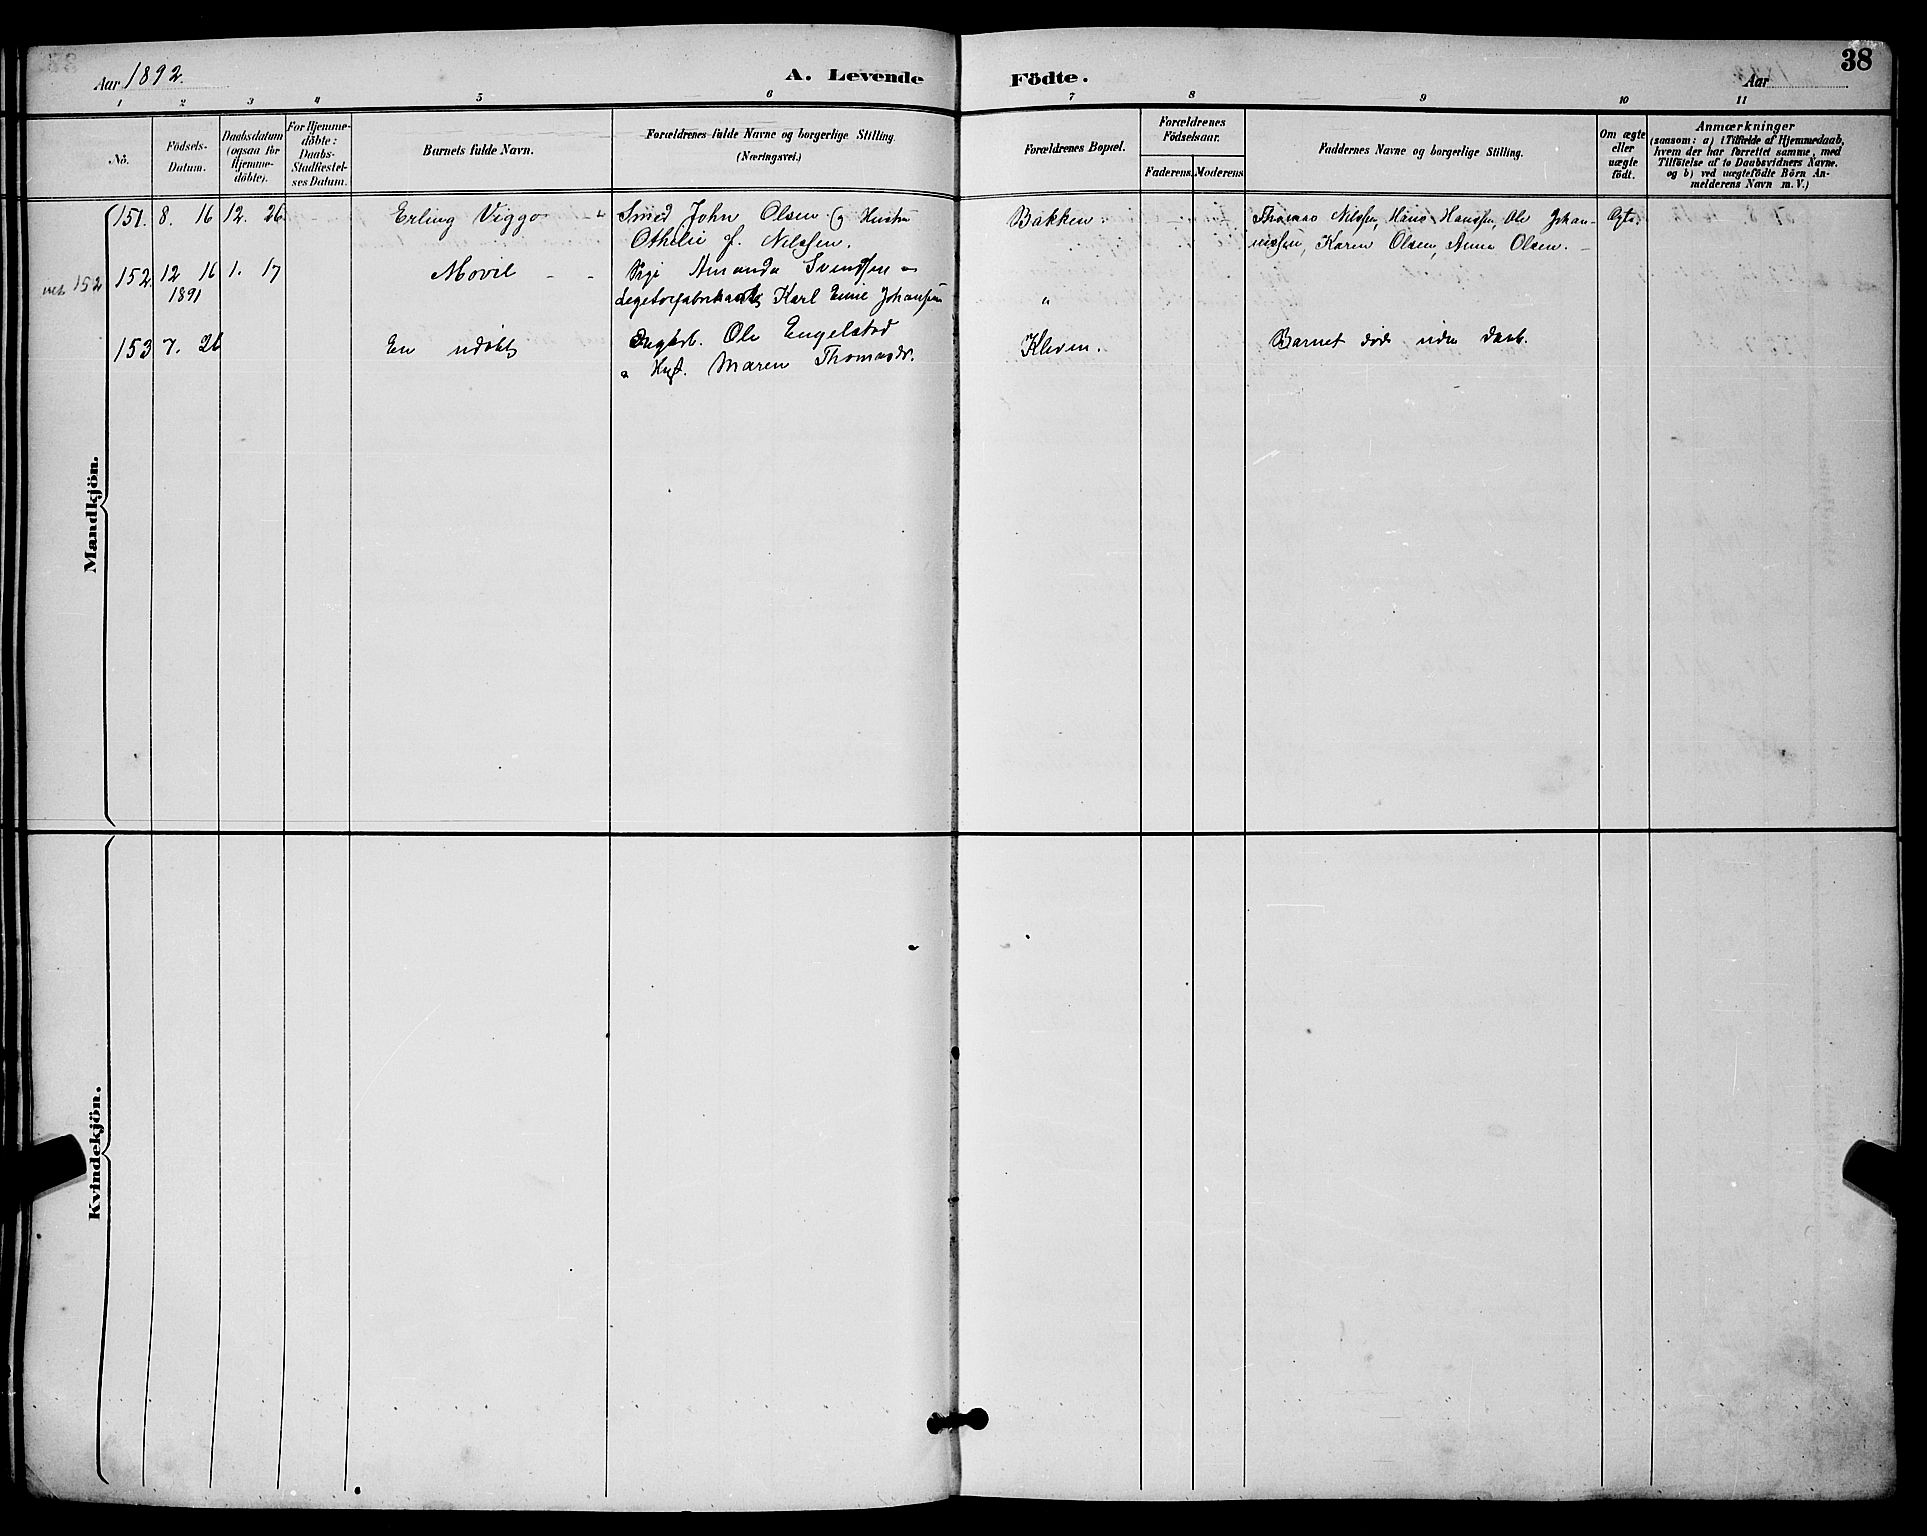 Aar 1892.
A. Levende Födte.
Aar
38
1 2 3 4 5 6 7 8 9 10 11
No.
Födsels-Datum.
Daabsdatum (ogsaa for Hjemme-döbte).
For Hjemme-döbte: Daabs-Stadfæstel-ses Datum.
Barnets fulde Navn.
Forældrenes fulde Navne og borgerlige Stilling.
(Næringsvei.)
Forældrenes Bopæl.
Forældrenes Födselsaar.
Faderens. Moderens.
Faddernes Navne og borgerlige Stilling.
Om ægte eller uægte födt.
Anmærkninger
(saasom: a) i Tilfælde af Hjemmedaab,
hvem der har forrettet samme, med
Tilföielse af to Daabsvidners Navne.
og b) ved uægtefödte Börn An-
melderens Navn m. V.)
Mandkjön.
151. 8. 16 12. 26 Erling Viggo Smed John Olsen og Hustru Bakken. Thomas Nilssen, Hans Hanssen, Ole Johan- Ægte.
Othelie f. Nilssen. nessen, Karen Olsen, Anna Olsen.
152 152. 12 16 1. 17 Pige Amanda Svendsen
1891 Karl Johansen "
153 7. 26 En udøbt Ole Engelstad Kleven. Barnet døde uden Daab.
Maren Thomasdr.
Kvindekjön.